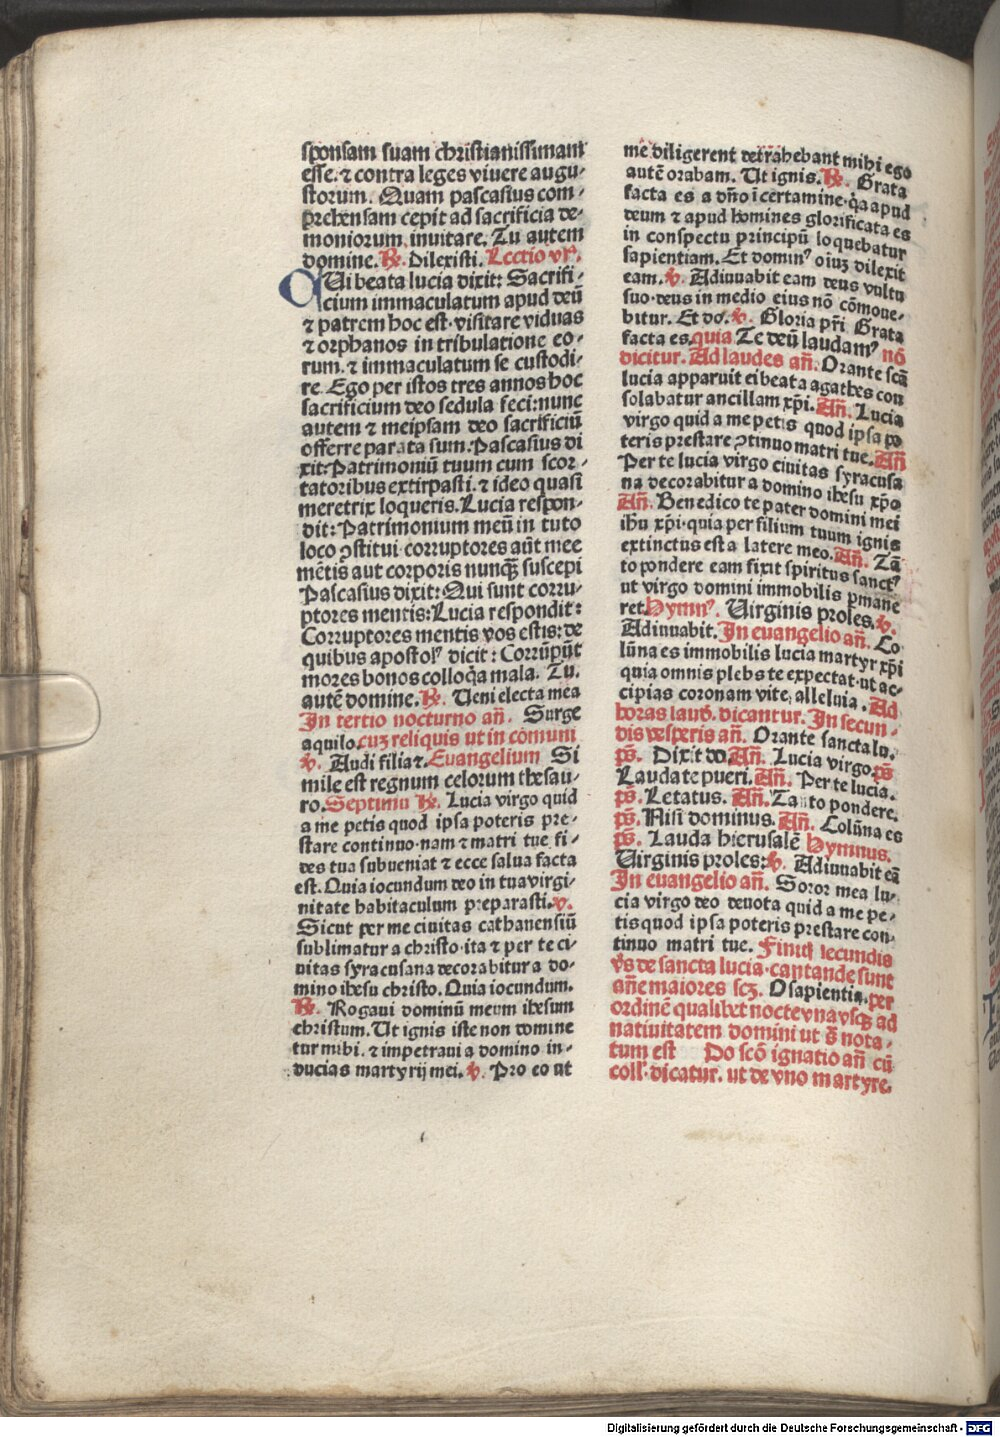 sponsam suam christianissimam
esse. ⁊ contra leges viuere augu-
storum. Quam pascasius com-
prehensam cepit ad sacrificia de-
moniorum inuitare. Tu autem
domine. ℟. Dilexisti. Lectio vi͛.
QUi beata lucia dixit: Sacrifi-
cium immaculatum apud deū
⁊ patrem hoc est· visitare viduas
⁊ orphanos in tribulatione eo-
rum. ⁊ immaculatum se custodi-
re. Ego per istos tres annos hoc
sacrificium deo sedula feci: nunc
autem ⁊ meipsam deo sacrificiū
offerre parata sum. Pascasius di
xit: Patrimoniū tuum cum scor-
tatoribus extirpasti. ⁊ ideo quasi
meretrix loqueris. Lucia respon-
dit: Patrimonium meū in tuto
loco ꝯstitui· corruptores aūt mee
mētis aut corporis nunqꝫ̄ suscepi
Pascasius dixit: Qui sunt corru-
ptores mentis: Lucia respondit:
Corruptores mentis vos estis: de
quibus apostolꝰ dicit: Corrūpūt
mores bonos colloq̄a mala. Tu.
autē domine. ℟. Ueni electa mea
In tertio nocturno an̄. Surge
aquilo. cuꝫ reliquis ut in cōmuni
℣. Audi filia ⁊. Euangelium Si
mile est regnum celorum thesau-
ro. Septimū ℟. Lucia virgo quid
a me petis quod ipsa poteris pre-
stare continuo· nam ⁊ matri tue fi-
des tua subueniat ⁊ ecce salua facta
est. Quia iocundum deo in tua virgi-
nitate habitaculum preparasti. ℣.
Sicut per me ciuitas cathanensiū
sublimatur a christo· ita ⁊ per te ci-
uitas syracusana decorabitur a do-
mino ihesu christo. Quia iocundum.
℟. Rogaui dominū meum ihesum
christum. Ut ignis iste non domine
tur mihi. ⁊ impetraui a domino in-
ducias martyrij mei. ℣. Pro eo ut
me diligerent detrahebant mihi ego
autē orabam. Ut ignis. ℟. Grata
facta es a dn̄o ī certamine· q̄a apud
deum ⁊ apud homines glorificata es
in conspectu principū loquebatur
sapientiam. Et dominꝰ oīuꝫ dilexit
eam. ℣. Adiuuabit eam deus vultu
suo· deus in medio eius nō cōmoue-
bitur. Et do. ℣. Gloria pr̄i Grata
facta es. quia Te deū laudamꝰ nō
dicitur. Ad laudes an̄. Orante scā
lucia apparuit ei beata agathes con
solabatur ancillam xp̄i. An̄. Lucia
virgo quid a me petis quod ipsa po
teris prestare ꝯtinuo matri tue. An̄
Per te lucia virgo ciuitas syracusa
na decorabitur a domino ihesu xp̄o
An̄. Benedico te pater domini mei
ihū xp̄i· quia per filium tuum ignis
extinctus est a latere meo. An̄. Tā
to pondere eam fixit spiritus sanctꝰ
ut virgo domini immobilis p̱mane
ret. Hymnꝰ. Uirginis proles. ℣.
Adiuuabit. In euangelio an̄. Co
lūna es immobilis lucia martyr xp̄i
quia omnis plebs te expectat· ut ac-
cipias coronam vite, alleluia. Ad
horas laud̄. dicantur. In secun-
dis vesperis an̄. Orante sancta lu.
p̄s. Dixit do. An̄. Lucia virgo. p̄s
Laudate pueri. An̄. Per te lucia.
p̄s. Letatus. An̄. Tanto pondere.
p̄s. Nisi dominus. An̄. Colūna es
p̄s. Lauda hierusalē Hymnus.
Uirginis proles: ℣. Adiuuabit eā
In euangelio an̄. Soror mea lu-
cia virgo deo deuota quid a me pe-
tis quod ipsa poteris prestare con-
tinuo matri tue. Finitꝭ secundis
v̄s de sancta lucia· cantande sunt
an̄e maiores scꝫ. O sapientia. per
ordinē qualibet nocte vna vsqꝫ ad
natiuitatem domini ut s̄ nota-
tum est Do scō ignatio an̄ cū
coll̄· dicatur. ut de vno martyre.
Digitalisierung gefördert durch die Deutsche Forschungsgemeinschaft - DFG